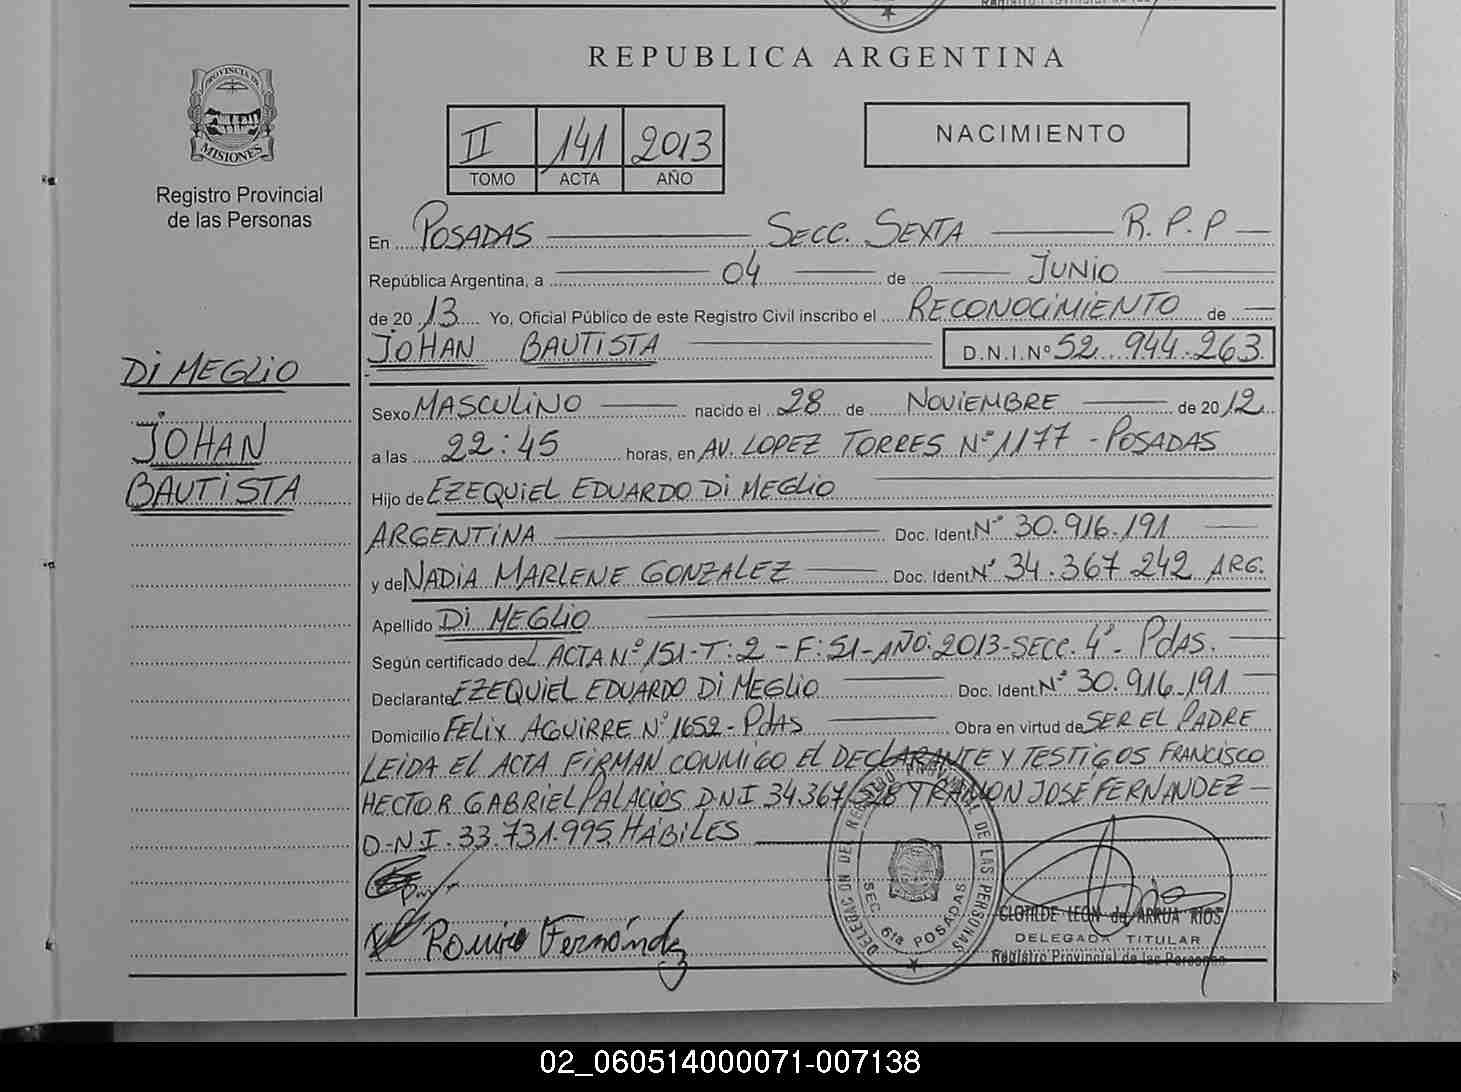 REPUBLICA ARGENTINA
PROVINCIA DE
MISIONES
Registro Provincial
de las Personas
II 141 2013
TOMO ACTA AÑO
NACIMIENTO
En POSADAS SECC. SEXTA R.P.P
República Argentina, a 04 de JUNIO
de 20 13 Yo, Oficial Público de este Registro Civil inscribo el RECONOCIMIENTO de
JOHAN BAUTISTA D.N.I.Nº 52.944.263
DI MEGLIO
JOHAN
BAUTISTA
Sexo MASCULINO nacido el 28 de NOVIEMBRE de 2012
a las 22:45 horas, en AV. LOPEZ TORRES Nº 1177 - POSADAS
Hijo de EZEQUIEL EDUARDO DI MEGLIO
ARGENTINA Doc. Ident. Nº 30.916.191
y de NADIA MARLENE GONZALEZ Doc. Ident. Nº 34.367.242 ARG.
Apellido DI MEGLIO
Según certificado del ACTA Nº 151-T:2-F:51-AÑO:2013-SECC.4º- PdAS.
Declarante EZEQUIEL EDUARDO DI MEGLIO Doc. Ident. Nº 30.916.191
Domicilio FELIX AGUIRRE Nº 1652-PdAS Obra en virtud de SER EL PADRE
LEIDA EL ACTA FIRMAN CONMIGO EL DECLARANTE Y TESTIGOS FRANCISCO
HECTOR GABRIEL PALACIOS DNI Y RAMON JOSÉ FERNANDEZ
D.N.I. 33.731.995 HABILES
DELEGACION DEL REGISTRO PROVINCIAL DE LAS PERSONAS
SEC. 6ta POSADAS
Fernández
CLOTILDE LEON de ARRUA RIOS
DELEGADA TITULAR
Registro Provincial de las Personas
02_060514000071-007138